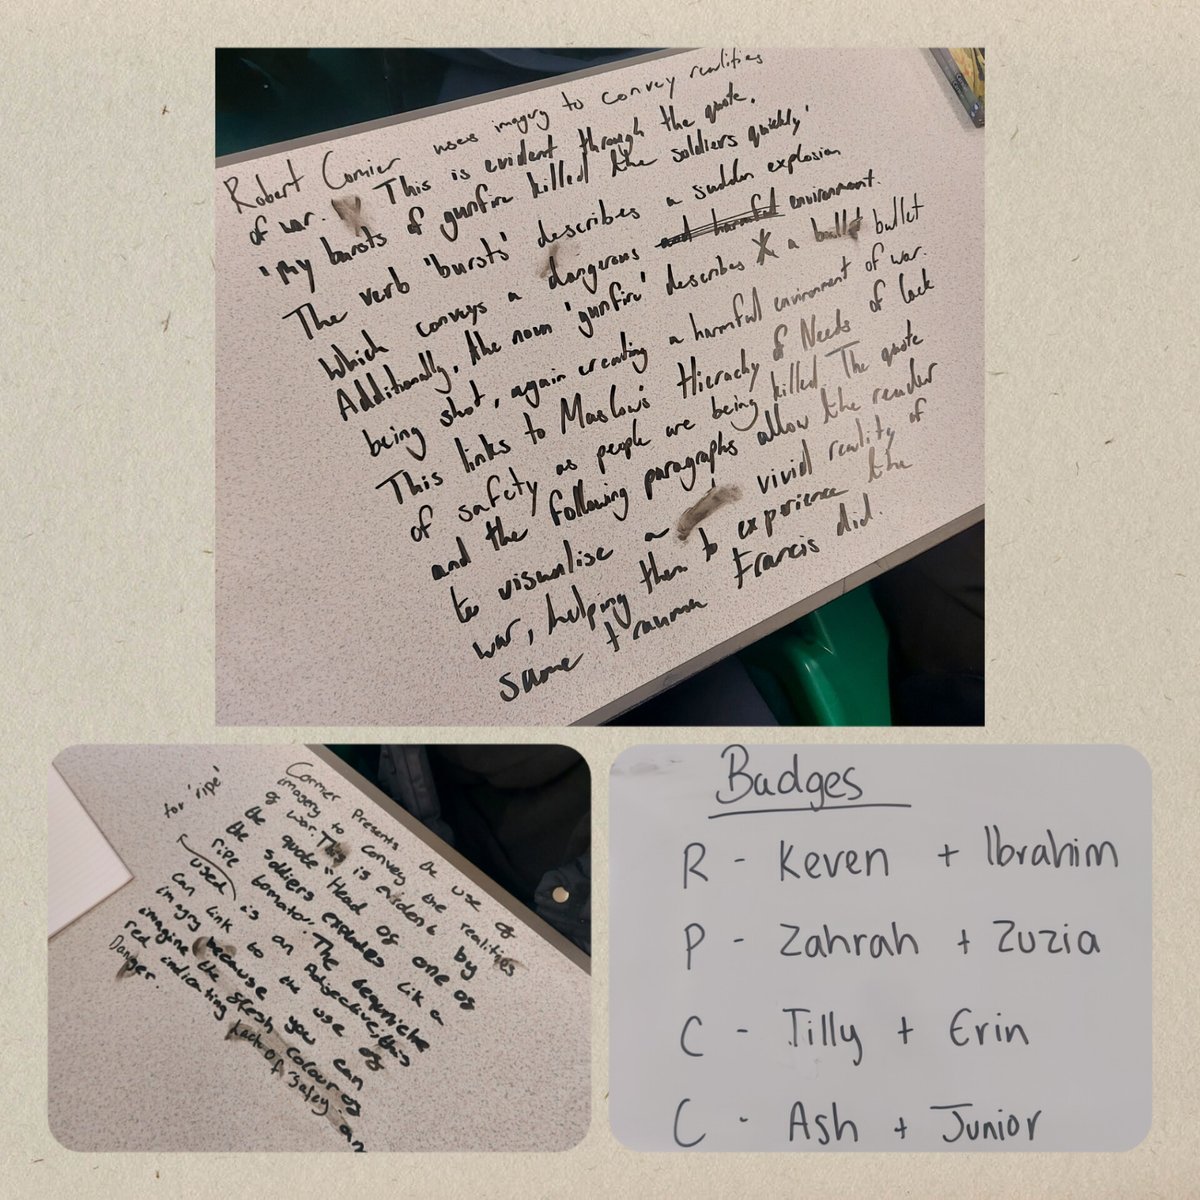 Robert Cormier uses imagery to convey realities
of war. This is evident through the quote,
'my bursts of gunfire killed the soldiers quickly'
The verb 'bursts' describes a sudden explosion
Which conveys a dangerous and harmful environment.
Additionally, the noun 'gunfire' describes a bullet bullet
being shot, again creating a harmfull environment of war.
This links to Maslow's Hierachy of Needs of lack
of safety as people are being killed. The quote
and the following paragraphs allow the reader
to visualise a vivid reality of
war, helping them to experience the
same trauma Francis did.
for 'ripe'
Cormier presents the use of
imagery to convey the realities
of war. This is evident by
the quote "Head of one of
the soldiers explodes lik a
ripe tomato". The tequniche
used is an Adjsective, this
can link to the use of
imagry because you can
imagine the flesh colour of
red indicating Lack of Safey an
Danger.
Badges
R - Keven + Ibrahim
P - Zahrah + Zuzia
C - Tilly + Erin
C - Ash + Junior